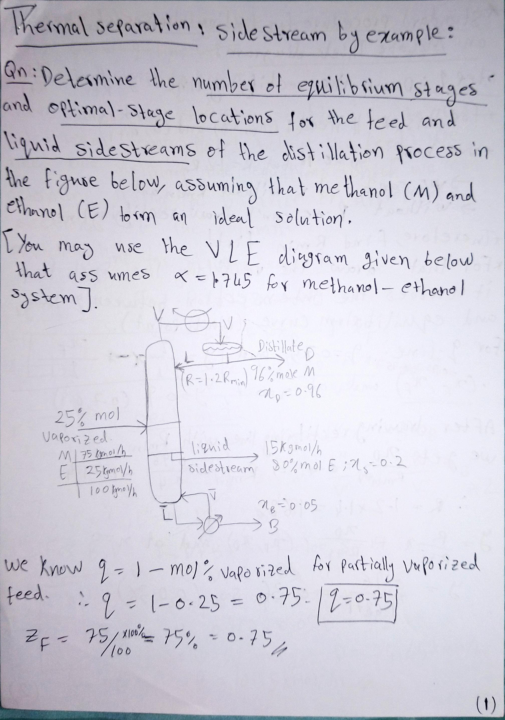 Thermal separation: side stream by example:
Qn: Determine the number of equilibrium stages
and optimal-stage locations for the feed and
liquid sidestreams of the distillation process in
the figure below, assuming that methanol (M) and
ethanol (E) form an ideal solution.
[You may use the VLE diagram given below
that assumes α = 1.745 for methanol-ethanol
system].
V
V
L
Distillate D
(R=1.2Rmin) 96% mole M
x_D = 0.96
25% mol
vaporized
M 75 kgmol/h
E 25 kgmol/h
100 kgmol/h
liquid
sidestream
15 kgmol/h
80% mol E; x_s = 0.2
V̅
x_B = 0.05
L̅
B
We know q = 1 - mol% vaporized for partially vaporized
feed. ∴ q = 1-0.25 = 0.75. q=0.75
Z_F = 75/100 ×100% = 75% = 0.75
(1)